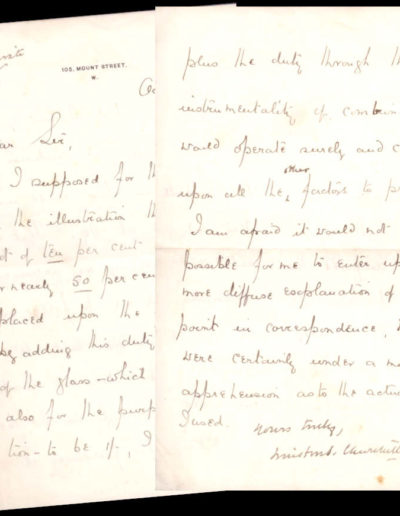 105, MOUNT STREET,
W.
Sir,
I supposed for
the illustration
of ten per cent
nearly 50 per cen
placed upon the
by adding this duty
of the glass – which
also for the purp
tion – to be 1/-, I
plus the duty through th
instrumentality of combin
would operate surely and c
other
upon all the factors to p
I am afraid it would not
possible for me to enter up
more diffuse explanation of
point in correspondence,
were certainly under a m
apprehension as to the actu
I used.
Yours truly,
Winston S. Churchill